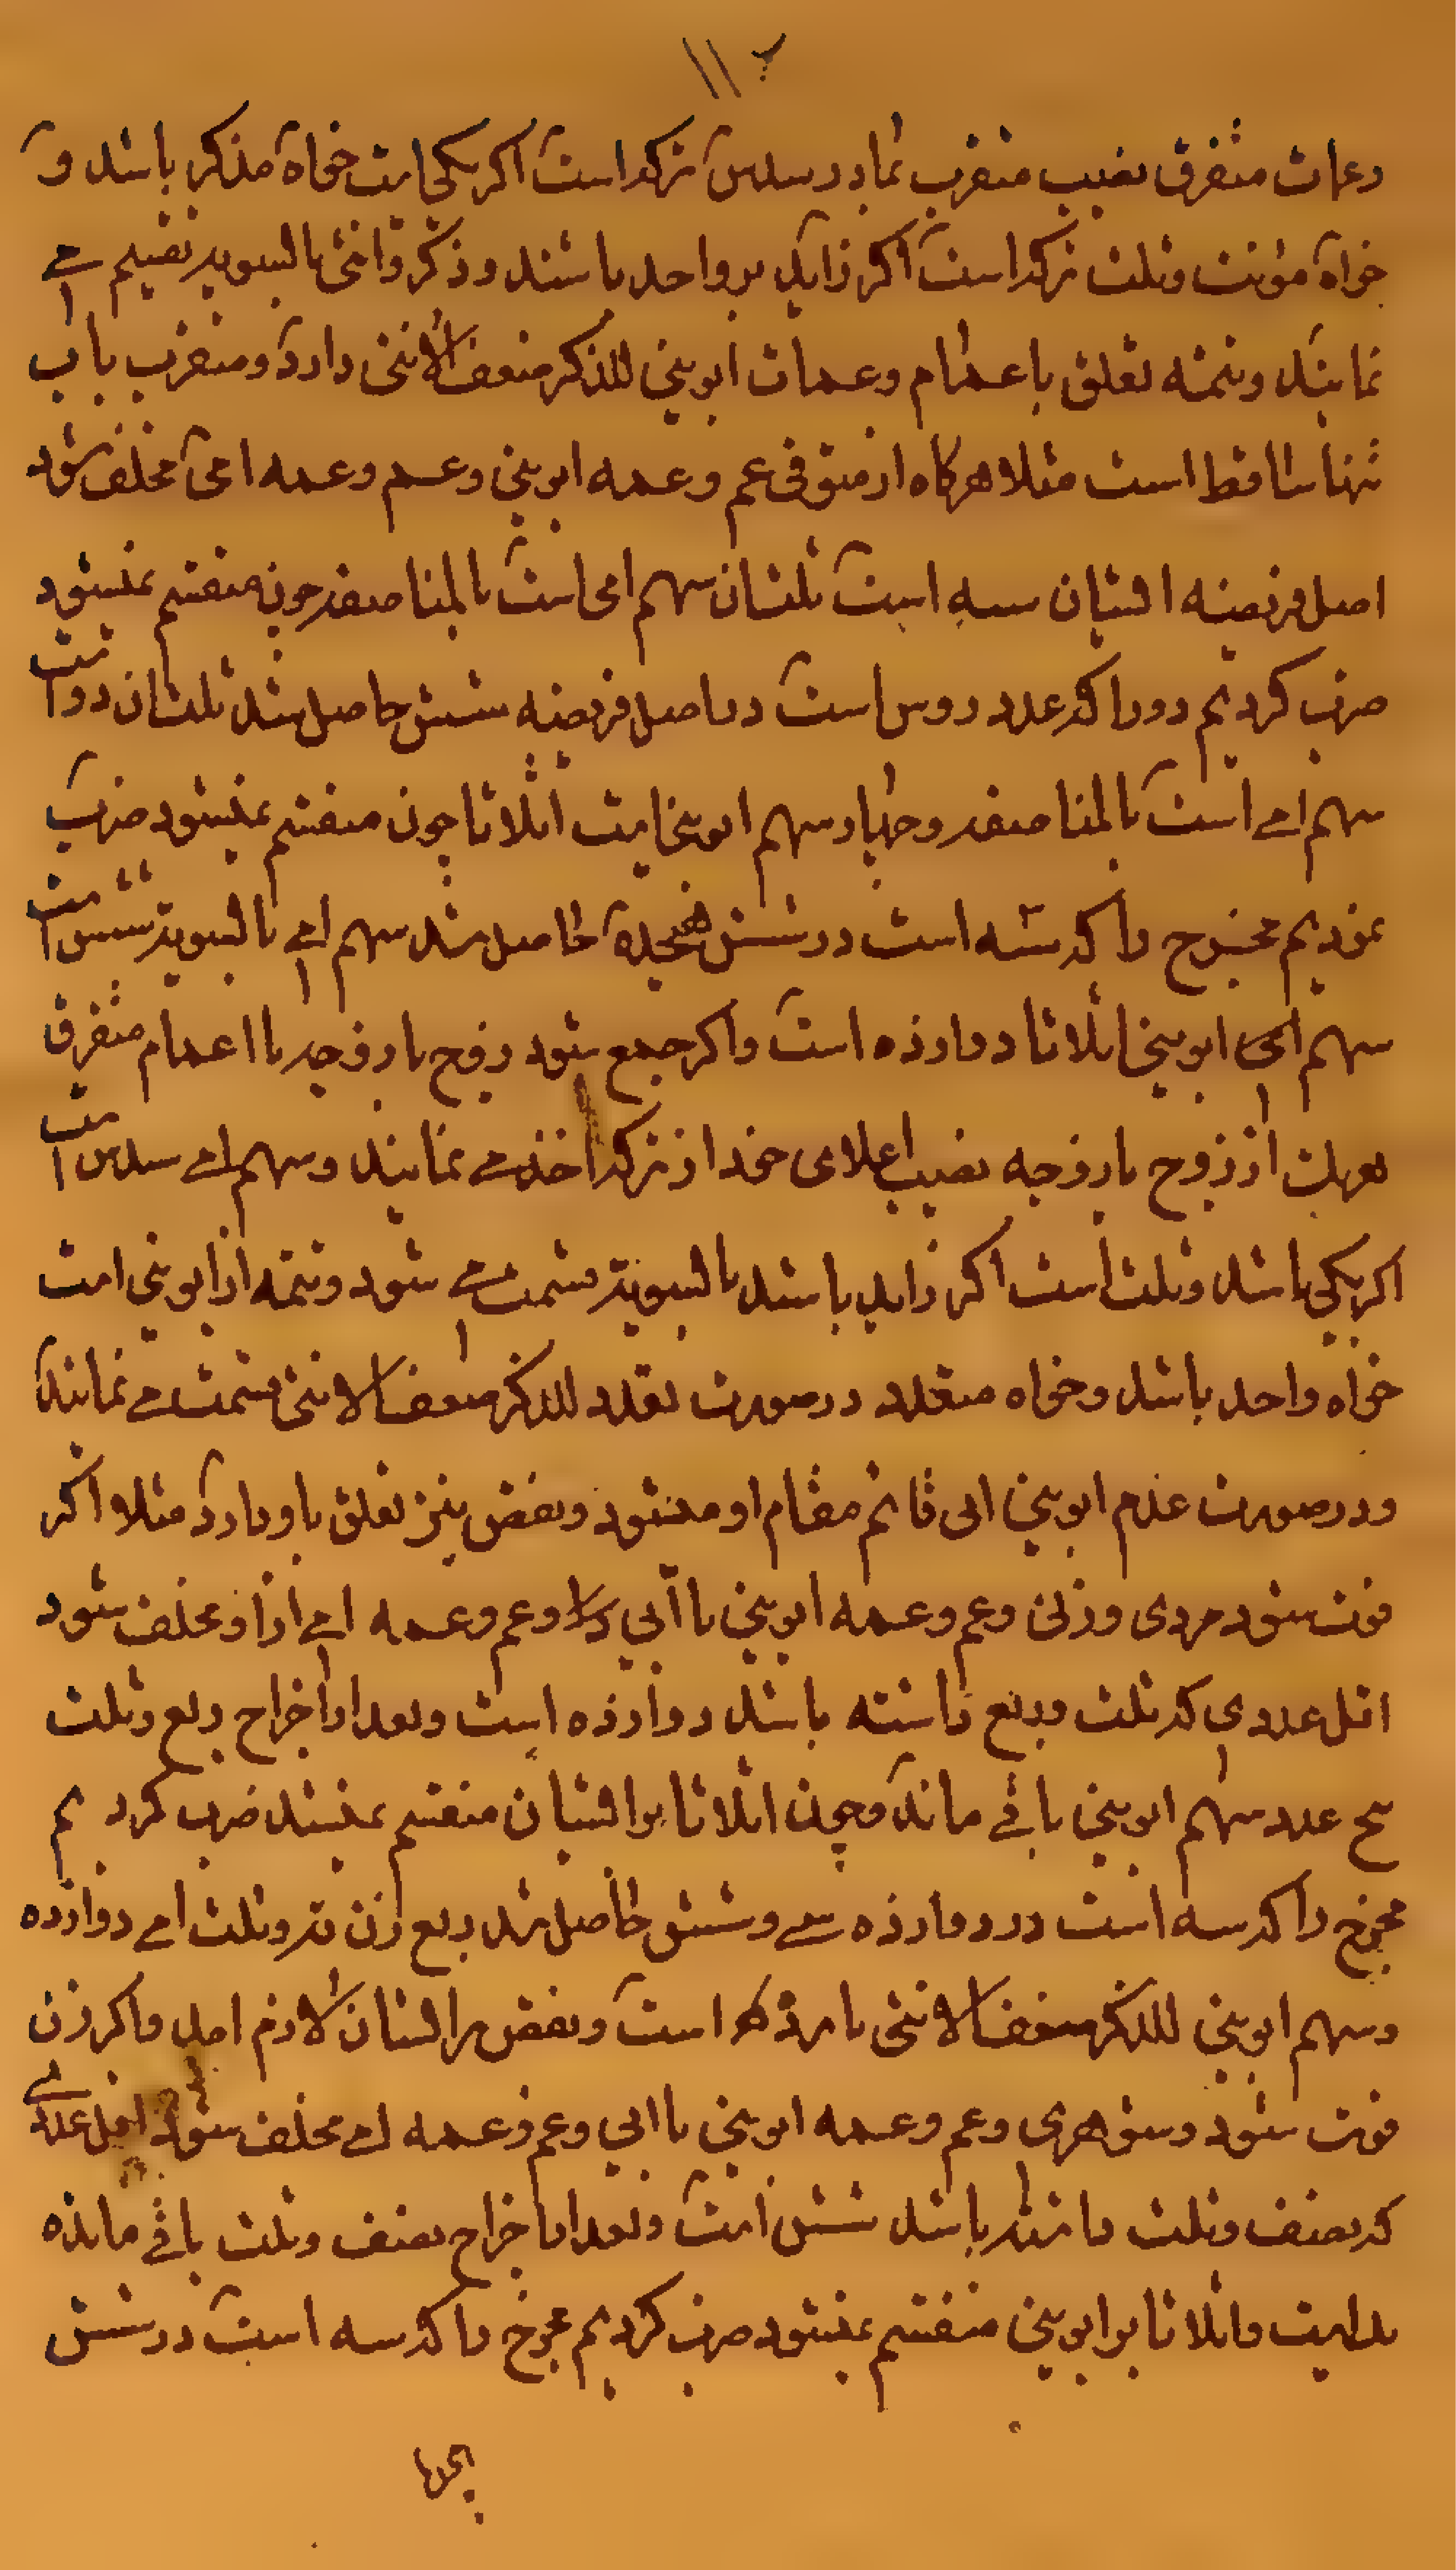 وعمات متفرق نصیب متقرب بمادر سدس ترکه است اکر یکی است خواه مذکر باشد و
خواه مؤنث وثلث ترکه است اکر زاید بر واحد باشند وذکر وانثی بالسویه تقسیم مے
نمایند وتتمه تعلق باعمام وعمات ابوینی للذکر ضعف الانثی دارد ومتقرب باب
تنها ساقط است مثلا هرکاه از متوفی عم وعمه ابوینی وعم وعمه امی مخلف شود
اصل فریضه ایشان سه است ثلث آن سهم امی است بالمناصفه چون منقسم نمیشود
ضرب کردیم دو را که عدد روس است در اصل فریضه شش حاصل شد ثلث آن دو است
سهم امے است بالمناصفه وچهار سهم ابوینی است اثلاثا چون منقسم نمیشود ضرب
نمودیم مخرج را که سه است در شش هیجده حاصل شد سهم امے بالسویه شش است
سهم ابوینی اثلاثا دوازده است واکر جمع شود زوج یا زوجه با اعمام متفرق
هریک از زوج یا زوجه نصیب اعلای خود از ترکه اخذ مے نمایند وسهم امے سدس است
اکر یکی باشد وثلث است اکر زاید باشند بالسویه قسمت مے شود وتتمه از ابوینی است
خواه واحد باشد وخواه متعدد در صورت تعدد للذکر ضعف الانثی قسمت مے نمایند
ودر صورت عدم ابوینی ابی قائم مقام او میشود ونقص نیز تعلق باو دارد مثلا اکر
فوت شود مردی وزنی وعم وعمه ابوینی یا ابی وعم وعمه امے از او مخلف شود
اقل عددی که ثلث وربع داشته باشد دوازده است وبعد از اخراج ربع وثلث
پنج عدد سهم ابوینی باقے ماند وچون اثلاثا بر ایشان منقسم نمیشد ضرب کردیم
مخرج را که سه است در دوازده سے وشش حاصل شد ربع زن نه وثلث امے دوازده
وسهم ابوینی للذکر ضعف الانثی پانزده است ونقص بر ایشان لازم امد واکر زن
فوت شود وشوهری وعم وعمه ابوینی یا ابی وعم وعمه امے مخلف شود اقل عددے
که نصف وثلث داشته باشد شش است وبعد از اخراج نصف وثلث باقے مانده
یک است واثلاثا بر ابوینی منقسم نمیشود ضرب کردیم مخرج را که سه است در شش